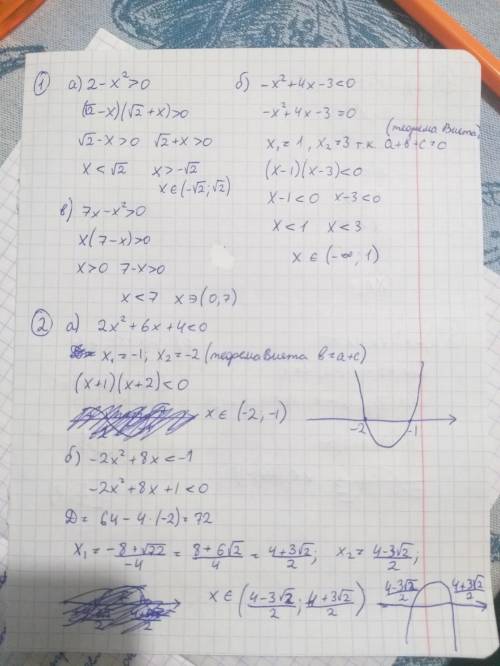 1 а) 2-x²>0
(√2-x)(√2+x)>0
√2-x>0 √2+x>0
x<√2 x>-√2
x∈(-√2;√2)
б) -x²+4x-3<0
-x²+4x-3=0
(теорема Виета)
x₁=1, x₂=3 т.к. a+b+c=0
(x-1)(x-3)<0
x-1<0 x-3<0
x<1 x<3
x∈(-∞;1)
в) 7x-x²>0
x(7-x)>0
x>0 7-x>0
x<7 x∋(0,7)
2 а) 2x²+6x+4<0
x₁=-1, x₂=-2 (теорема Виета b=a+c)
(x+1)(x+2)<0
x∈(-2,-1)
-2 -1
б) -2x²+8x<-1
-2x²+8x+1<0
Д=64-4·(-2)=72
x₁=(-8+√72)/-4=(8+6√2)/4=(4+3√2)/2; x₂=(4-3√2)/2;
x∈((4-3√2)/2;(4+3√2)/2)
(4-3√2)/2 (4+3√2)/2